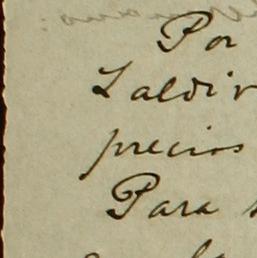 Por
Zaldiv
precios
Para